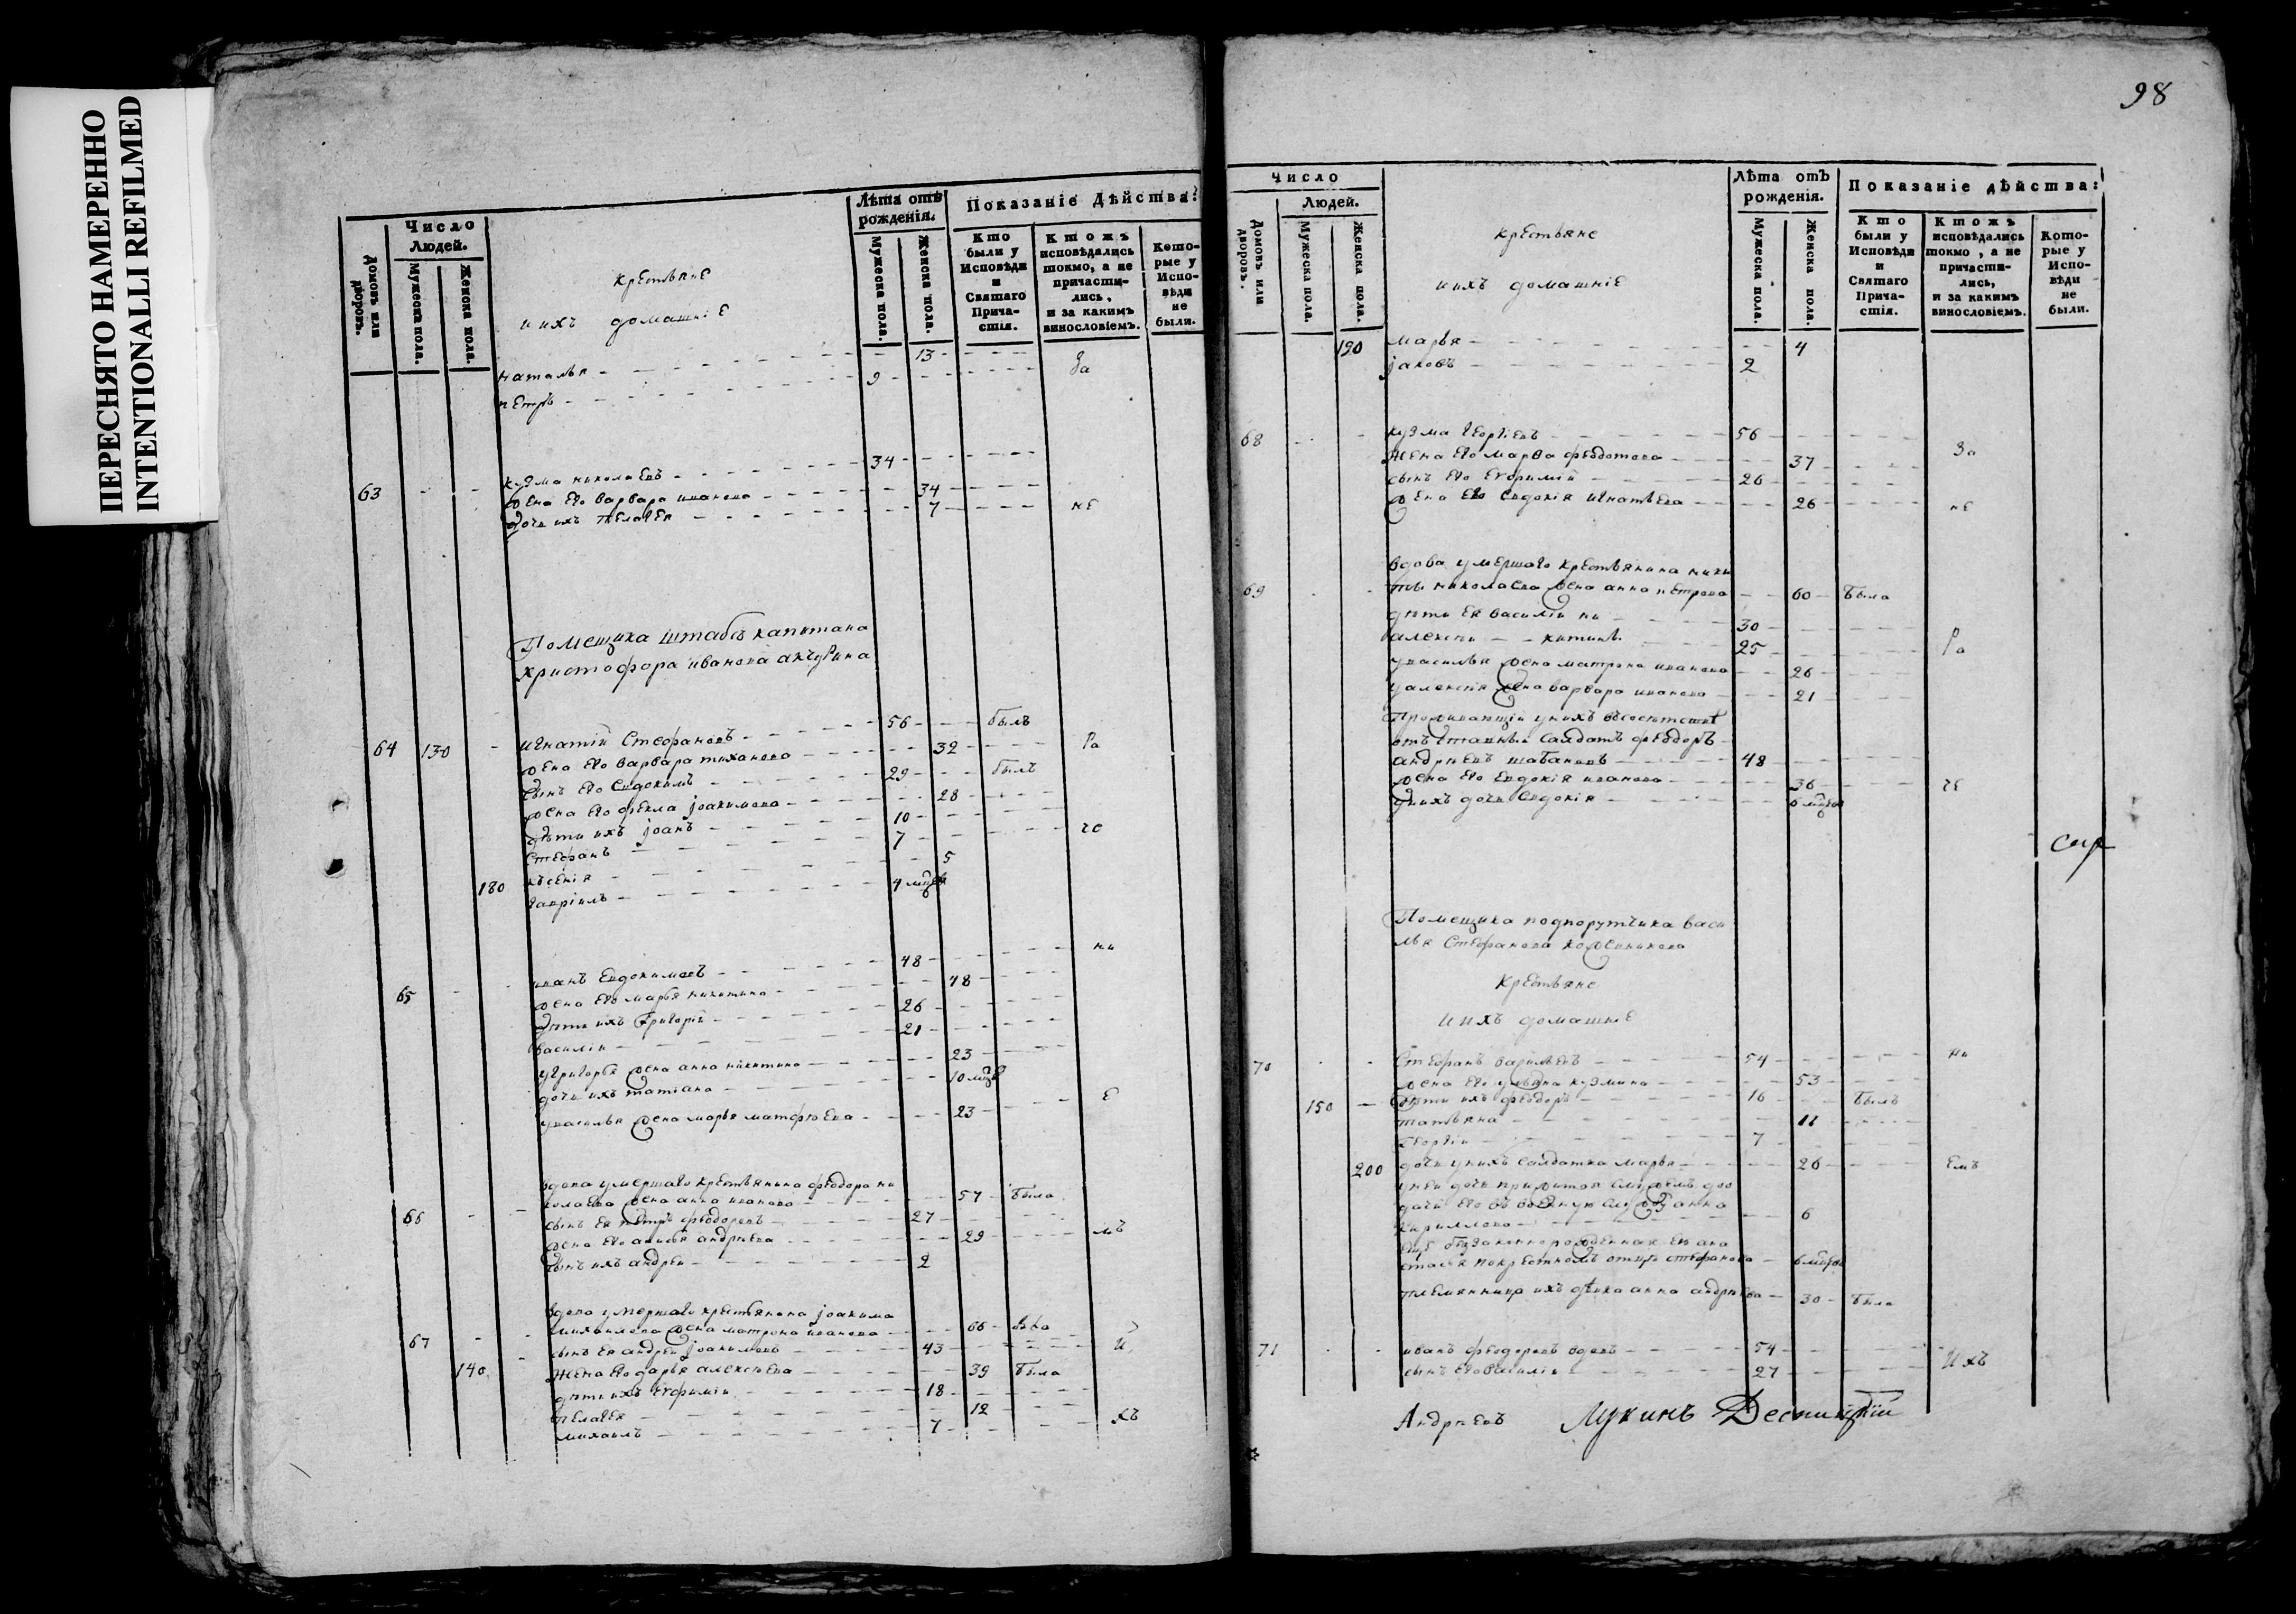 ПЕРЕСНЯТО НАМЕРЕННО
INTENTIONALLI REFILMED
Число
Людей.
Домовъ или дворовъ.
Мужеска пола.
Женска пола.
крестьяне
и ихъ домашніе
Лѣта отъ рожденія.
Мужеска пола.
Женска пола.
Показаніе Дѣйства:
Кто были у Исповѣди и Святаго Причастія.
Ктожъ исповѣдались токмо, а не причастились, и за какимъ винословіемъ.
Которые у Исповѣди не были.
наталья 13 За
петръ 9
63 кузма николаевъ 34
жена его варвара иванова 34
дочь ихъ пелагея 7 не
Помещика штабсъ капитана
христофора иванова акчурина
64 130 игнатій Стефановъ 56 былъ
жена его варвара тиханова 32 ра
сынъ его Евдокимъ 29 былъ
жена его фекла јоакимова 28
дѣти ихъ јоанъ 10
Стефанъ 7 че
180 ксенія 5
гавріилъ 9 мцсв
65 иванъ Евдокимовъ 48 ни
жена его марья никитина 48
дѣти ихъ Григорій 26
василіи 21
у григорья жена анна никитина 23
дочь ихъ татіана 10 мцсв
у василья жена марья матфѣева 23 е
вдова умершаго крестьянина феодора ни
66 колаева жена анна иванова 57 была
сынъ ея петръ феодоровъ 27
жена его анисья андрѣева 29 мъ
сынъ ихъ андреи 2
вдова умершаго крестьянина јоакима
67 михаилова жена матрона иванова 66
сынъ ея андреи јоакимовъ 43 и
140 жена его дарья алексѣева 39 была
дѣти ихъ Ефиміи 18
пелагея 12
михаилъ 7 хъ
98
Число
Людей.
Домовъ или дворовъ.
Мужеска пола.
Женска пола.
крестьяне
и ихъ домашніе
Лѣта отъ рожденія.
Мужеска пола.
Женска пола.
Показаніе дѣйства:
Кто были у Исповѣди и Святаго Причастія.
Ктожъ исповѣдались токмо, а не причастились, и за какимъ винословіемъ.
Которые у Исповѣди не были.
190 марья 4
јаковъ 2
68 кузма Георгіевъ 56
жена его марфа феодотова 37 За
сынъ его Ефимій 26
жена его Евдокія игнатьева 26 не
вдова умершаго крестьянина ники
69 ты николаева жена анна петрова 60 была
дѣти ея василіи ни 30
алексѣи китины 25 ра
у василья жена матрона иванова 26
у алексѣя жена варвара иванова 21
Проживающіи у нихъ
отъставныи салдатъ феодоръ
андрѣевъ шабановъ 48
жена его Евдокія иванова 36 че
у нихъ дочь Евдокія 6 мцсв
Помещика подпорутчика васи
лья Стефанова кожевникова
крестьяне
и ихъ домашніе
70 Стефанъ василіевъ 54 ни
жена его ульяна кузмина 53
150 дѣти ихъ феодоръ 16 былъ
татьяна 11
Георгіи 7
200 дочь у нихъ салдатка марья 26 емъ
у неи дочь прижитая съ мужемъ до
дачи его въ военную службу анна
кириллова 6
еще беззаконнорожденная ея ана
стасья по крестномъ отцѣ стефанова 6 мцсв
племянница ихъ дѣвка анна андрѣева 30 была
71 иванъ феодоровъ вдовъ 54
сынъ его василіи 27 ихъ
Андрѣевъ Лукинъ Десницкій